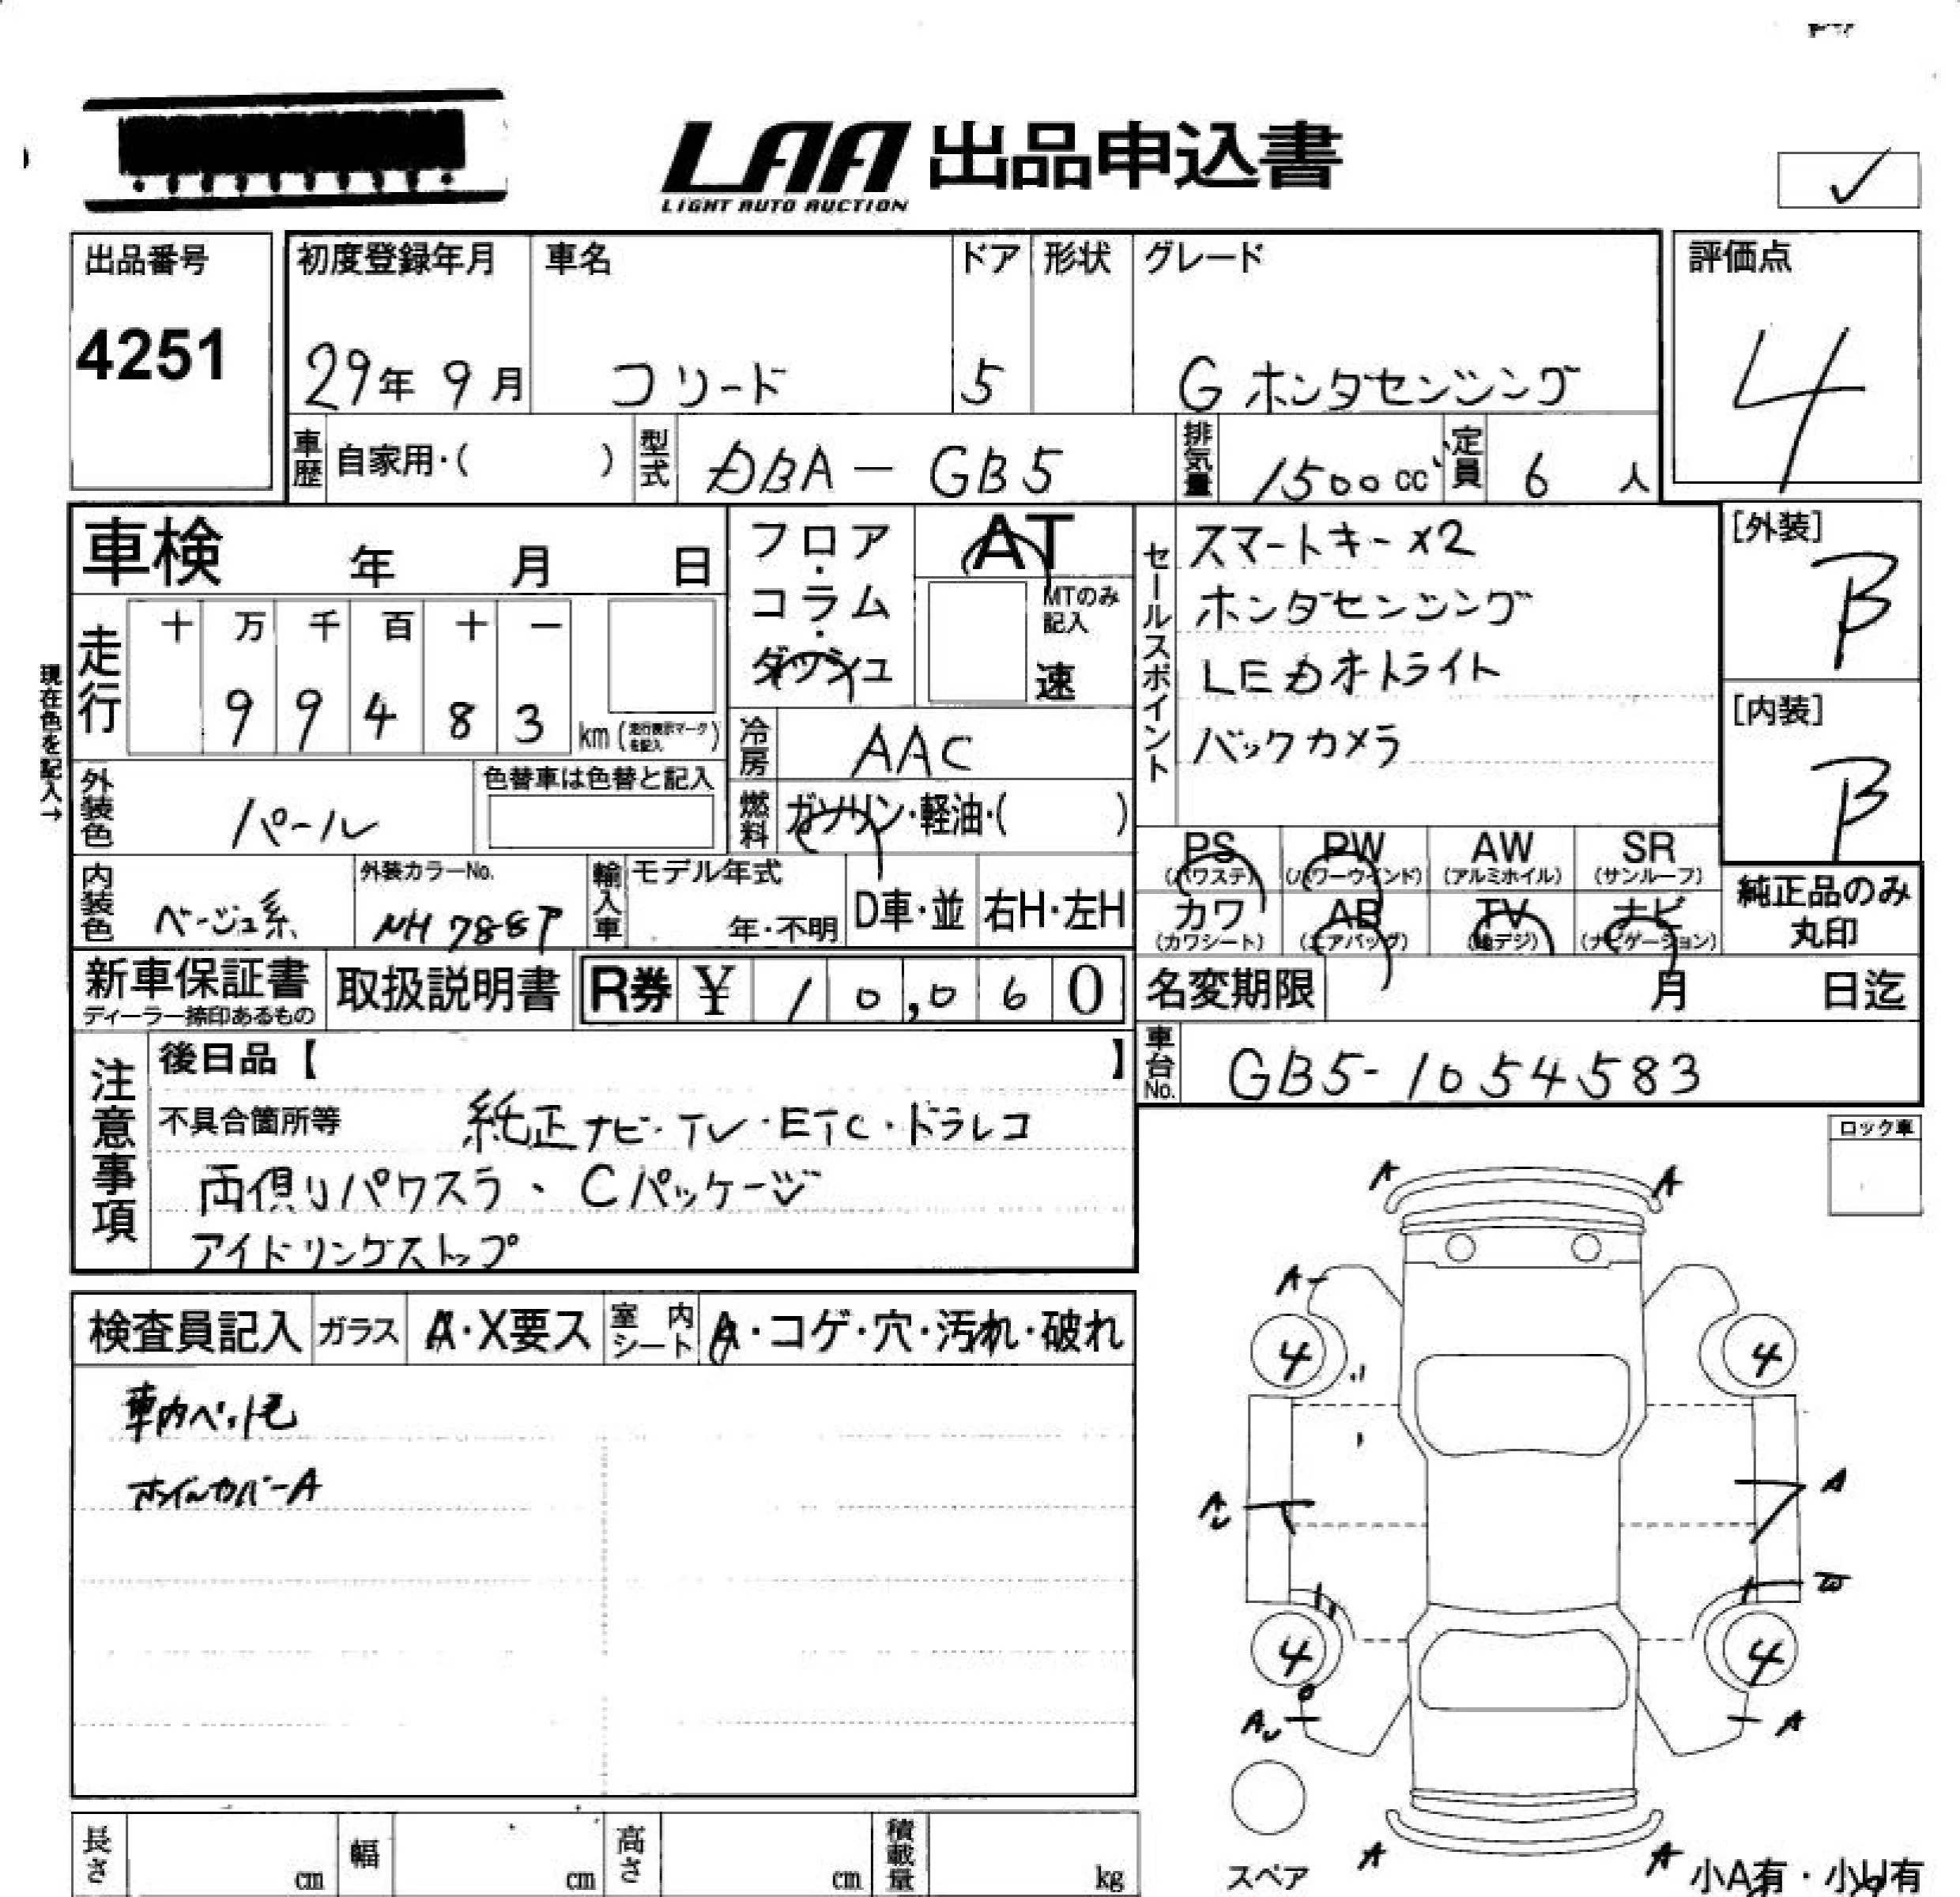 LAA 出品申込書
LIGHT AUTO AUCTION
✓
出品番号
4251
初度登録年月 車名 ドア 形状 グレード
29年 9月 フリード 5 G ホンダセンシング
評価点
4
車歴 自家用・( ) 型式 DBA-GB5 排気量 1500cc 定員 6人
車検 年 月 日
フロア・コラム・ダッシュ
AT
MTのみ記入
速
セールスポイント
スマートキー×2
ホンダセンシング
LEDオートライト
バックカメラ
[外装]
B
[内装]
B
現在色を記入→
走行 十 万 千 百 十 一
9 9 4 8 3 km(走行表示マークを記入)
冷房 AAC
外装色 パール 色替車は色替と記入
燃料 ガソリン・軽油・( )
内装色 ベージュ系 外装カラーNo. NH788P 輸入車 モデル年式 年・不明 D車・並 右H・左H
PS (パワステ) PW (パワーウインド) AW (アルミホイル) SR (サンルーフ)
カワ (カワシート) AB (エアバッグ) TV (地デジ) ナビ (ナビゲーション)
純正品のみ
丸印
新車保証書 取扱説明書 R券 ¥ 10,060
ディーラー捺印あるもの
名変期限 月 日迄
車台No. GB5-1054583
注意事項
後日品【 】
不具合箇所等 純正ナビ・TV・ETC・ドラレコ
両側リパワスラ、Cパッケージ
アイドリングストップ
ロック車
検査員記入 ガラス A・X要ス 室内シート A・コゲ・穴・汚れ・破れ
車内ペット毛
ホイルカバーA
A A
A
4 4
A
A
W
4 4
A
A
A A
スペア
小A有・小U有
長さ cm 幅 cm 高さ cm 積載量 kg